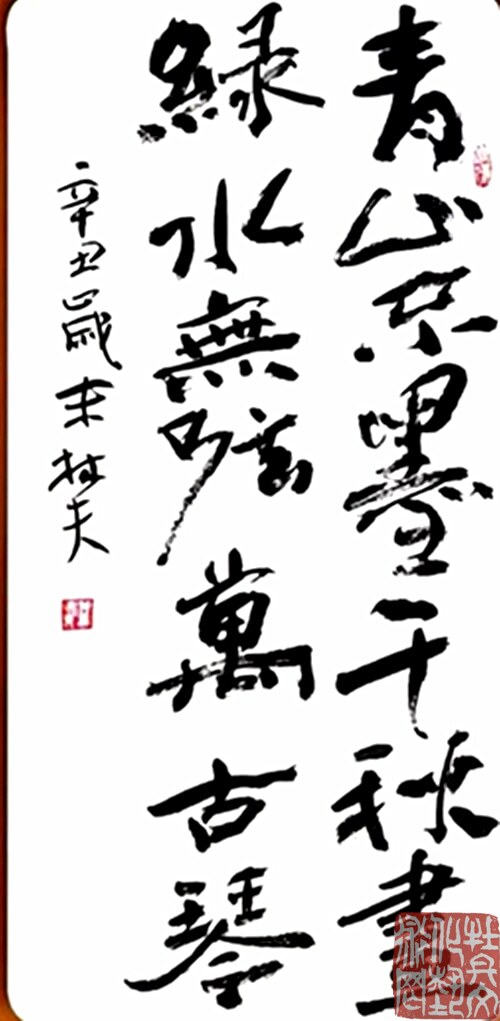 青山不墨千秋畫
綠水無弦萬古琴
辛丑歲末林夫